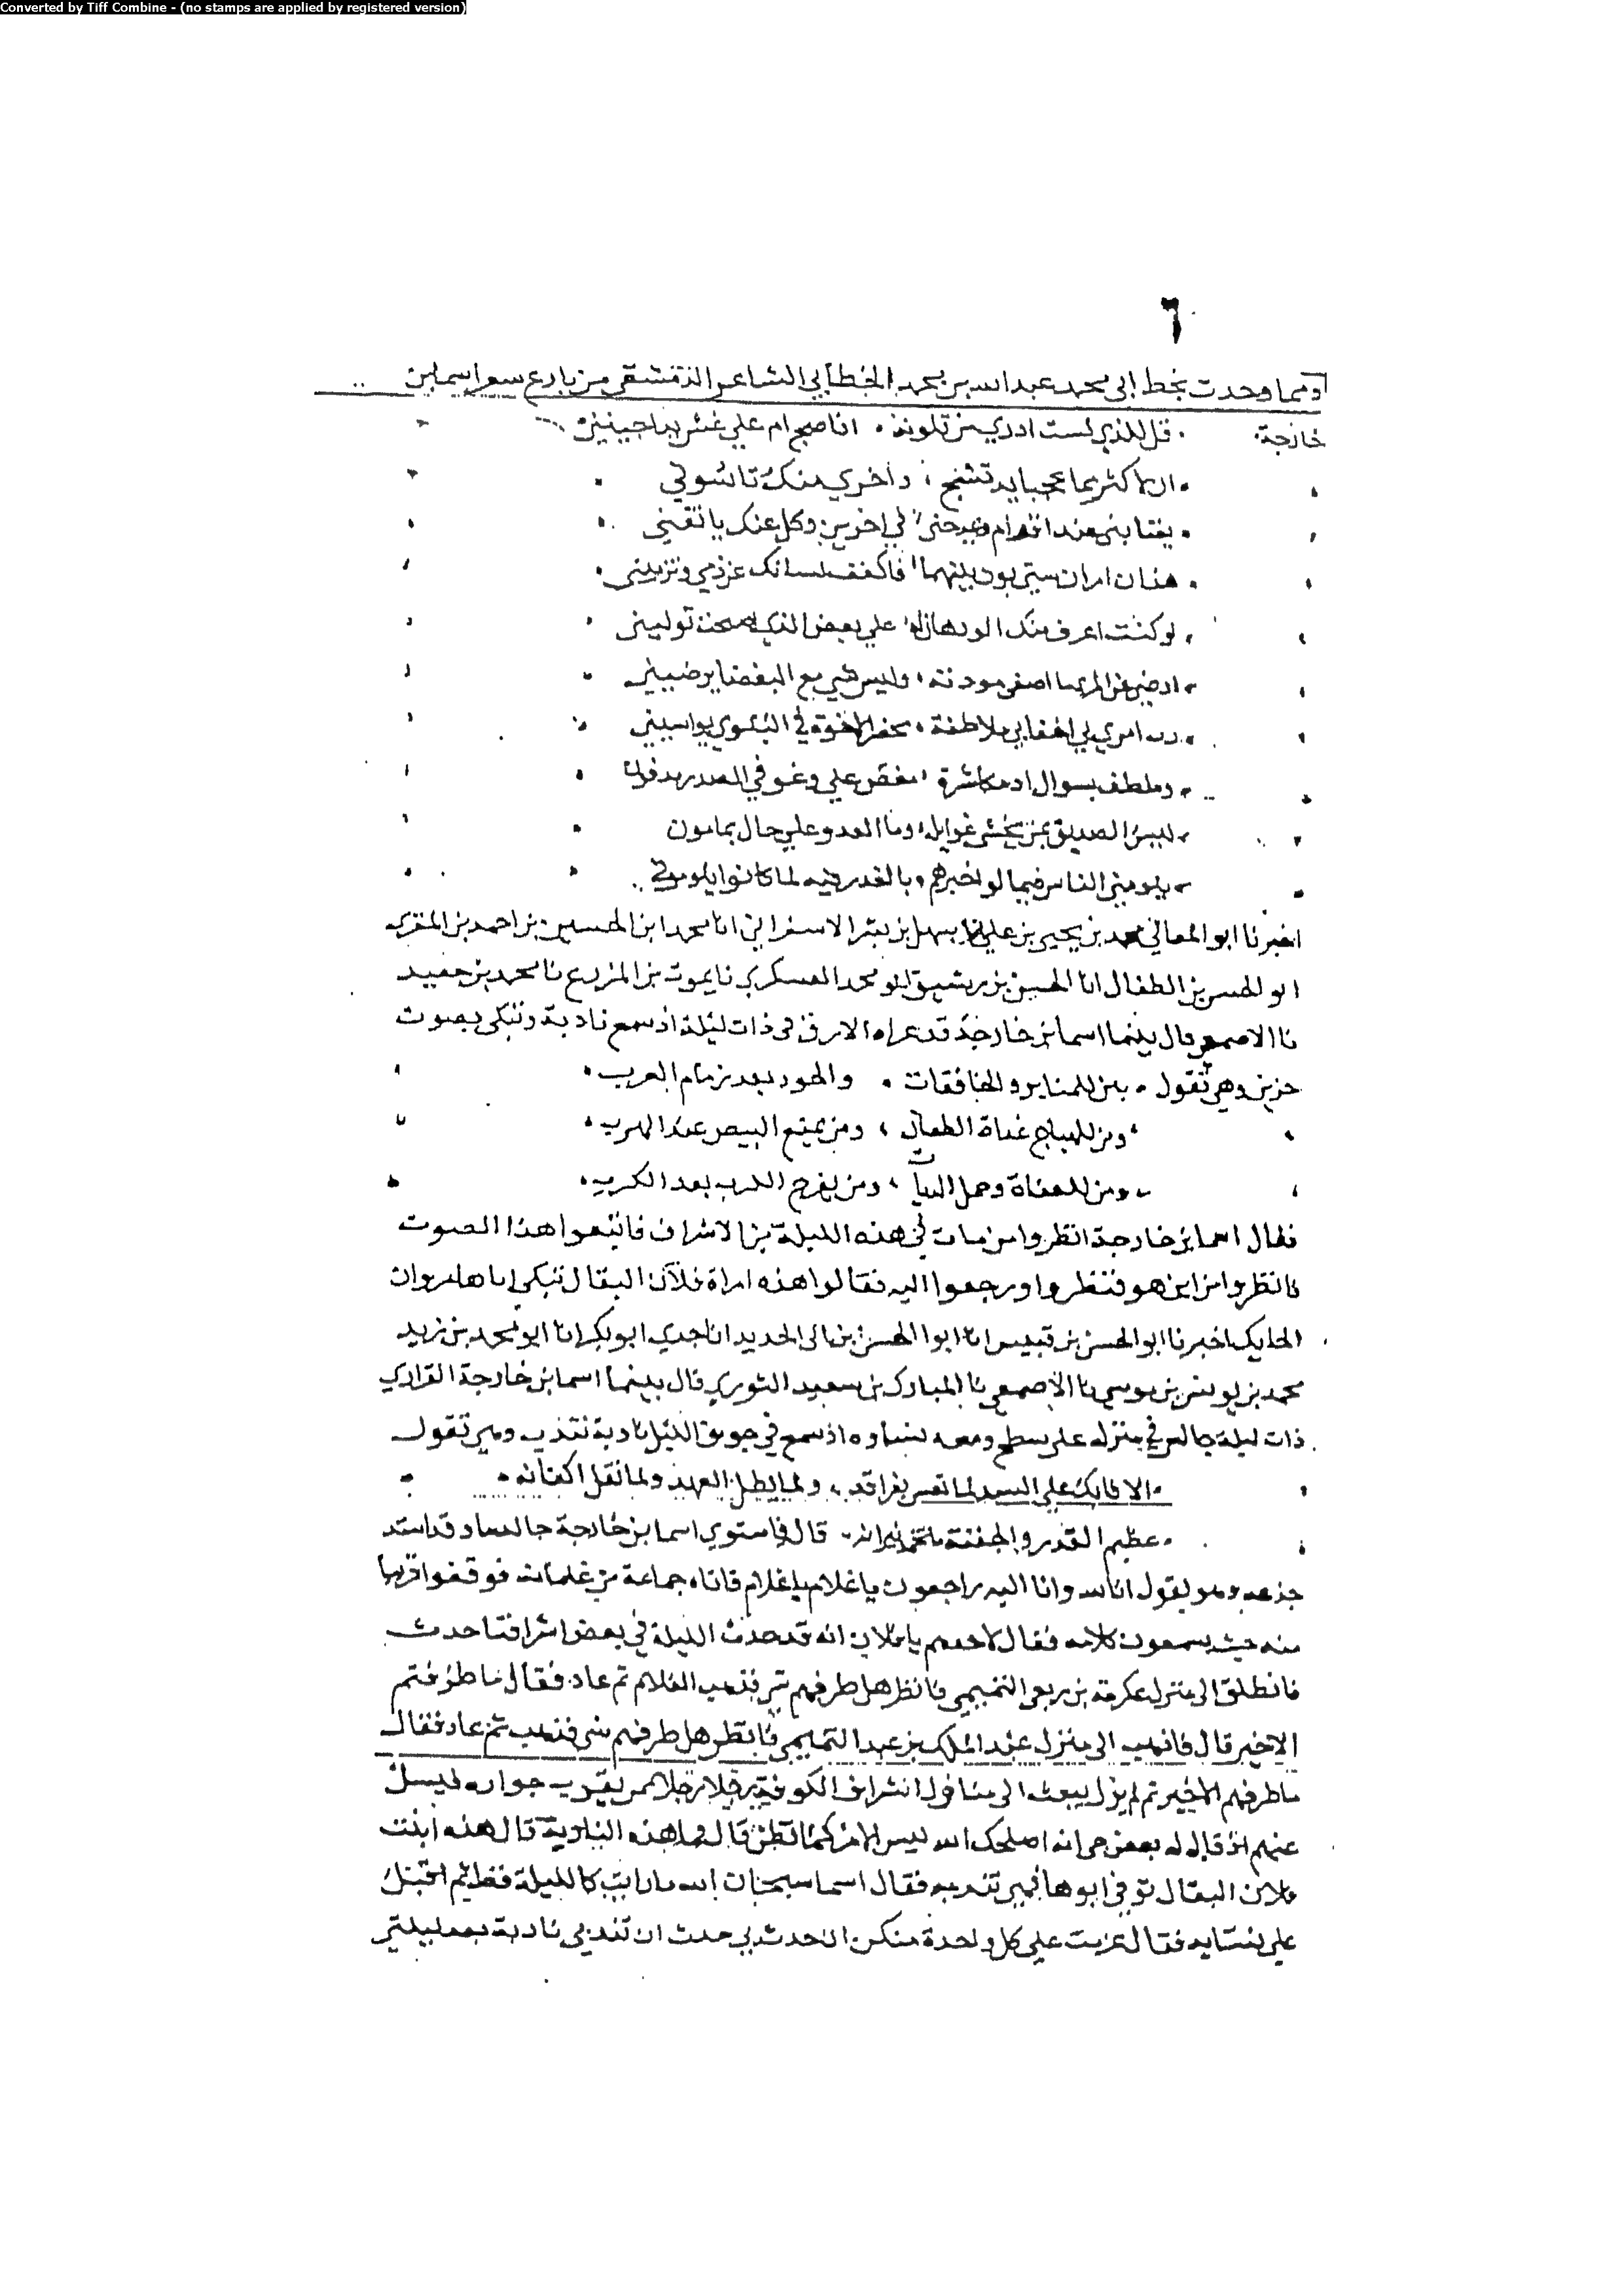 Converted by Tiff Combine - (no stamps are applied by registered version)
٦
ومما وجدت بخط ابي محمد عبد الله بن محمد الخطابي الشاعر الدمشقي من بارع شعر اسما بن
خارجة قل للذي لست ادري من تلونه اناصح ام علي غش يداجيني
اني لاكثر مما عجبا يد تشج واخري منك تاسوني
يغتابني عند اقوام ويمدحني في اخرين وكل عنك ياتيني
هذان امران شتي بون بينهما فاكفف لسانك عن ذمي وتزييني
لو كنت اعرف منك الود هان له علي بعض الذي اصبحت توليني
ارضي عن المرء ما اصفي مودته وليس شي مع البغضا يرضيني
رب امري لي اخفا بي ملاطفة محض الاخوة في البلوي يواسيني
وملطف بسوال او مكاشرة مغض علي وغر في الصدر مدفون
ليس الصديق بمن يخشي غوايله وما العدو علي حال بمامون
يلومني الناس فيما لو اخبرهم بالعذر فيه لما كانوا يلوموني
اخبرنا ابو المعالي محمد بن يحيي بن علي انا سهل بن بشر الاسفرايني انا محمد ابن الحسين بن احمد بن المقري
ابو الحسن بن الطفال انا الحسن بن رشيق ابو محمد العسكري نا يموت بن المزرع نا محمد بن حميد
نا الاصمعي قال بينما اسما بن خارجة قد عراه الارق في ذات ليلة اذ سمع نادبة وتبكي بصوت
حزين وهي تقول من للمنابر والخافقات والجود بعد زمام العرب
ومن للهياج غداة الطعان ومن يمنع البيض عند الهرب
ومن للعناة وحمل الديات ومن يفرج الكرب بعد الكرب
فقال اسما بن خارجة انظروا من مات في هذه الليلة من الاشراف فاتبعوا هذا الصوت
فانظروا من اين هو فنظروا ورجعوا اليه فقالوا هذه امراة فلان البقال تبكي اباها مروان
الحايك اخبرنا ابو الحسن بن قبيس انا ابو الحسن بن ابي الحديد انا جدي ابو بكر انا ابو محمد بن زبد
محمد بن يونس بن موسي نا الاصمعي نا المبارك بن سعيد الثوري قال بينما اسما بن خارجة الفزاري
ذات ليلة جالس في منزله علي سطح ومعه نساوه اذ سمع في جوف الليل نادبة تندب وهي تقول
الا فابك علي السيد لما تعس بغراته ولما يطل العهد ولما تقل اكفانه
عظيم القدر والجفنة ما تخمد نيرانه قال فاستوي اسما بن خارجة جالسا وقد اشتد
جذعه وهو يقول انا لله وانا اليه راجعون يا غلام يا غلام فاتاه جماعة من غلمانه فوقفوا قريبا
منه حيث يسمعون كلامه فقال لاحدهم يا فلان انه قد حدث الليلة في بعض اشرافنا حدث
فانطلق الي منزل عكرمة بن ربعي التميمي فانظر هل طرقهم شي فذهب الغلام ثم عاد فقال ما طرقهم
الا خير قال فاذهب الي منزل عبد الملك بن عبد التميمي فانظر هل طرقهم شي فذهب ثم عاد فقال
ما طرقهم الا خير ثم لم يزل يبعث الي منازل اشراف الكوفة رجلا رجلا ممن يقرب جواره ليسل
عنهم اذ قال له بعض جيرانه اصلحك الله ليس الامر كما تظن قال وما هذه النادبة قال هذه ابنت
فلان البقال توفي ابوها فهي تندبه فقال اسما سبحان الله ما رايت كالليلة قط ثم اقبل
علي نسايه فقال عزمت علي كل واحدة منكن ان حدث بي حدث ان تندبني نادبة بعد ليلتي